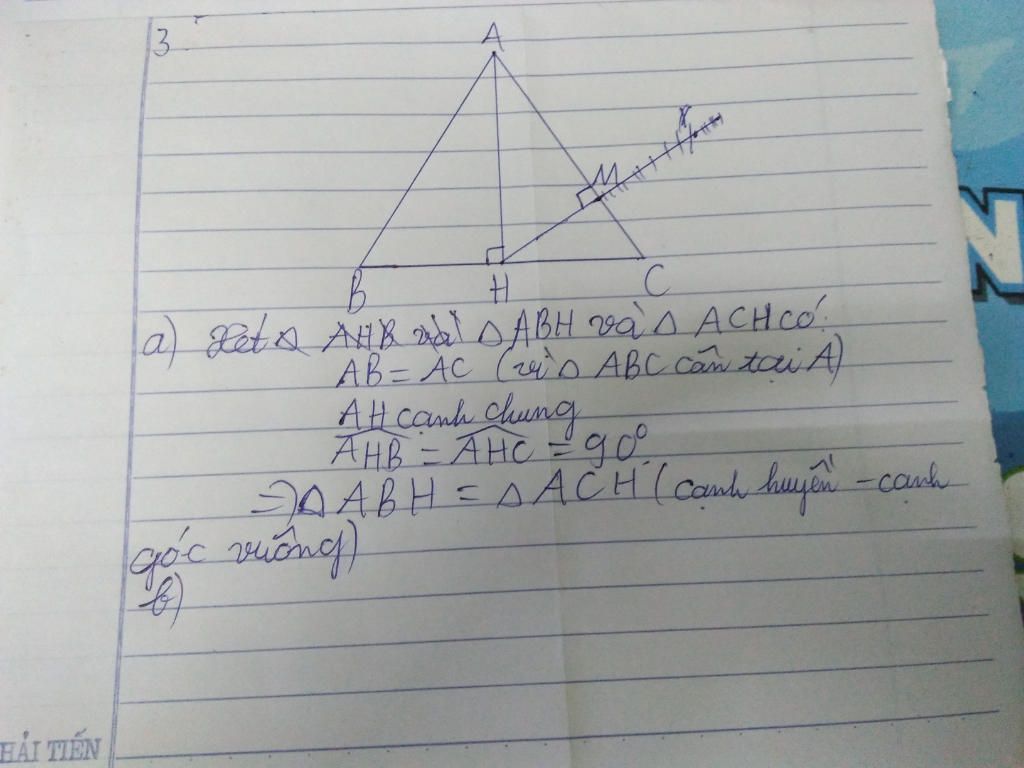 3
A
M
B H C
a) Xét △ AHB và △ ABH và △ ACH có:
AB = AC (vì △ ABC cân tại A)
AH cạnh chung
AHB = AHC = 90°
=> △ ABH = △ ACH (cạnh huyền - cạnh
góc vuông)
b)
HẢI TIẾN
N